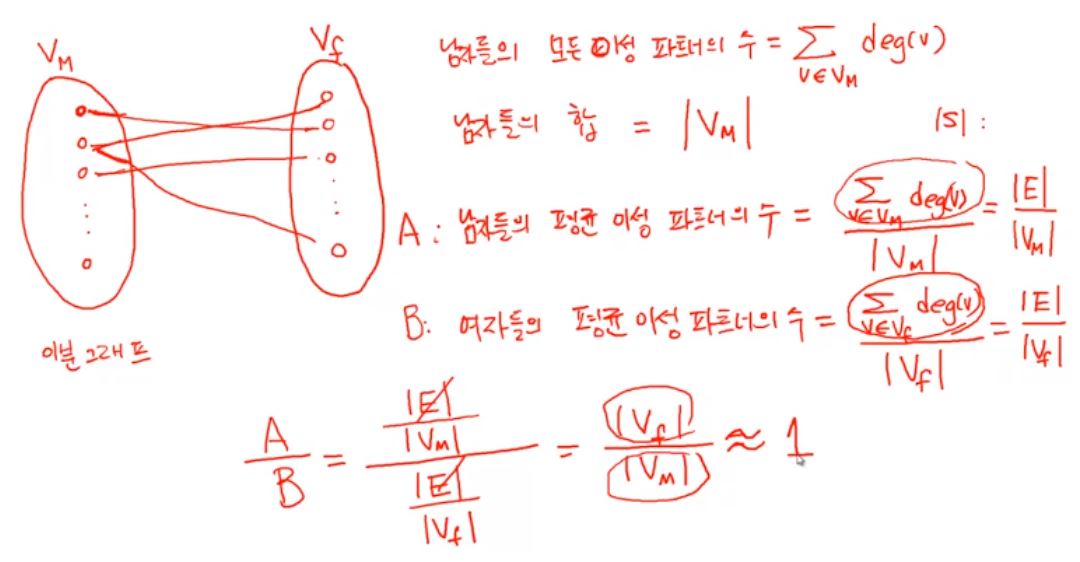 V_M
V_f
남자들의 모든 이성 파트너의 수 = ∑_{v∈V_M} deg(v)
남자들의 합 = |V_M|
|S| :
A : 남자들의 평균 이성 파트너의 수 = ∑_{v∈V_M} deg(v) / |V_M| = |E| / |V_M|
B : 여자들의 평균 이성 파트너의 수 = ∑_{v∈V_f} deg(v) / |V_f| = |E| / |V_f|
이분그래프
A / B = (|E| / |V_M|) / (|E| / |V_f|) = |V_f| / |V_M| ≈ 1